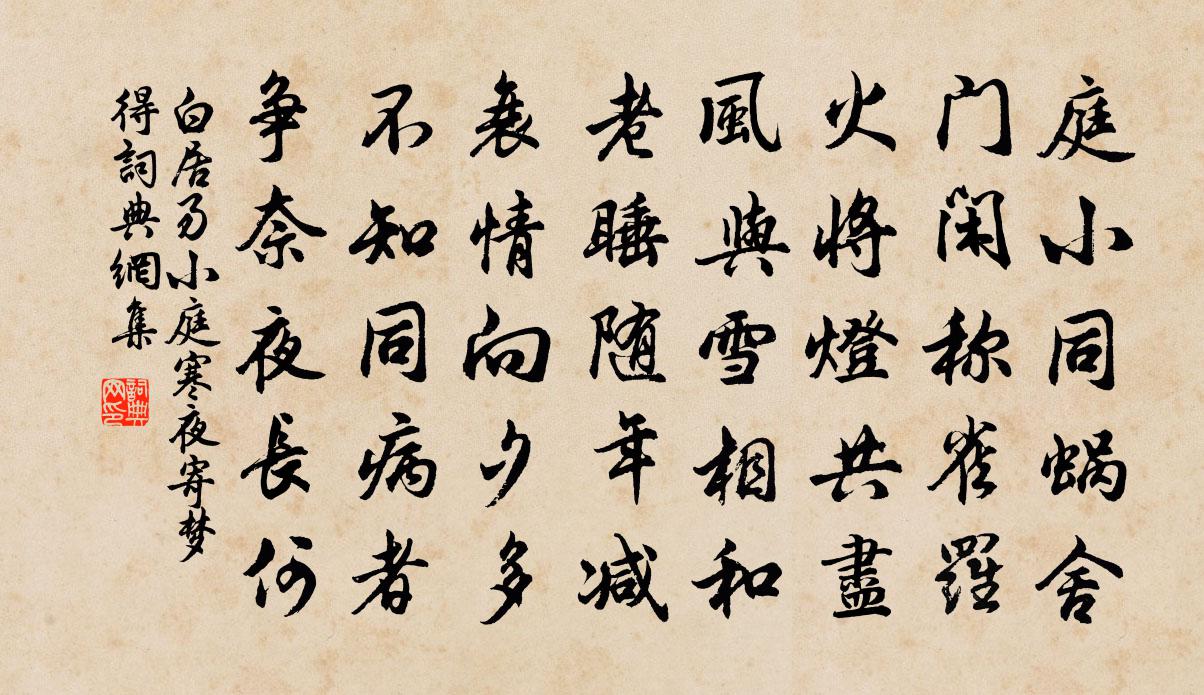 庭小同蜗舍
门闲称雀羅
火將燈共盡
風與雪相和
老睡随年减
衰情向夕多
不知同病者
争奈夜長何
白居易小庭寒夜寄梦
得詞典網集
詞典
网印